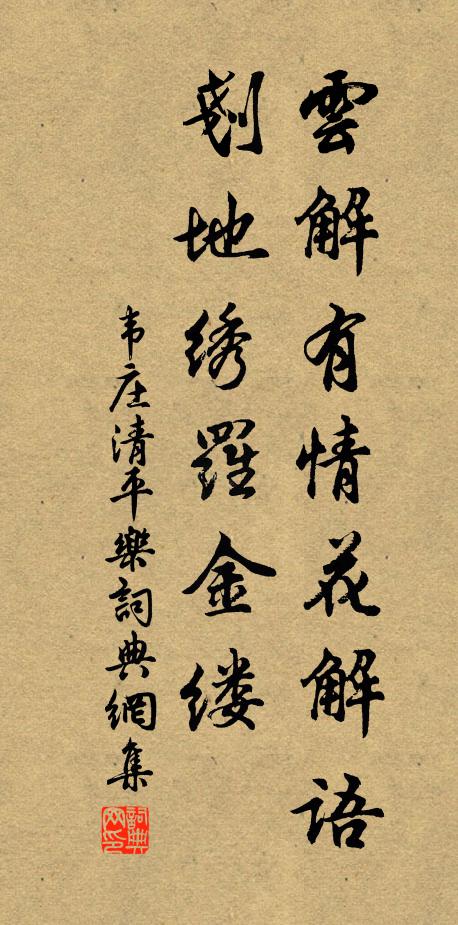 雲解有情花解語
刬地绣羅金缕
韦庄清平樂詞典網集
詞典网印